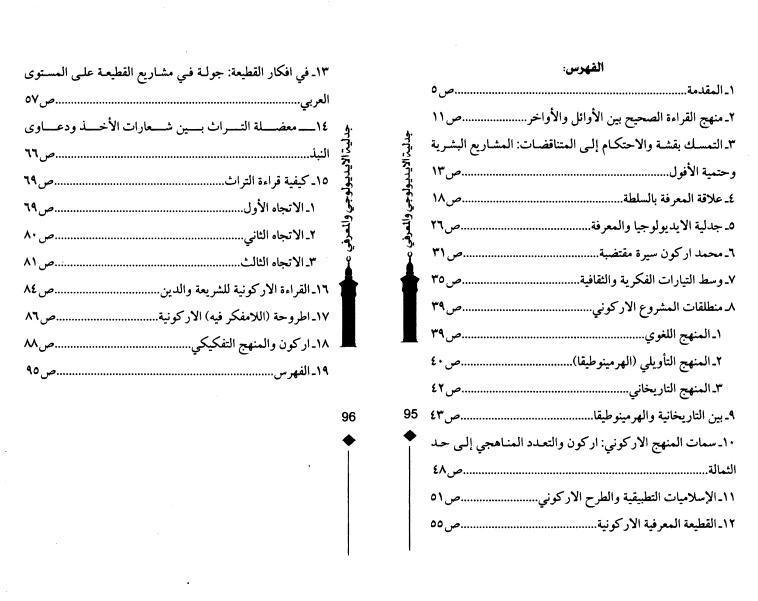 الفهرس:
١ـ المقدمة......ص٥
٢ـ منهج القراءة الصحيح بين الأوائل والأواخر......ص١١
٣ـ التمسك بقشة والاحتكام إلى المتناقضات: المشاريع البشرية
وحتمية الأفول......ص١٣
٤ـ علاقة المعرفة بالسلطة......ص١٨
٥ـ جدلية الايديولوجيا والمعرفة......ص٢٦
٦ـ محمد اركون سيرة مقتضبة......ص٣١
٧ـ وسط التيارات الفكرية والثقافية......ص٣٥
٨ـ منطلقات المشروع الاركوني......ص٣٩
١ـ المنهج اللغوي......ص٣٩
٢ـ المنهج التأويلي (الهرمينوطيقا)......ص٤٠
٣ـ المنهج التاريخاني......ص٤٢
٩ـ بين التاريخانية والهرمينوطيقا......ص٤٣
١٠ـ سمات المنهج الاركوني: اركون والتعدد المناهجي إلى حد
الثمالة......ص٤٨
١١ـ الإسلاميات التطبيقية والطرح الاركوني......ص٥١
١٢ـ القطيعة المعرفية الاركونية......ص٥٥
جدلية الايديولوجي والمعرفي
95
١٣ـ في افكار القطيعة: جولة في مشاريع القطيعة على المستوى
العربي......ص٥٧
١٤ــ معضلة التراث بين شعارات الأخذ ودعاوى
النبذ......ص٦٦
١٥ـ كيفية قراءة التراث......ص٦٩
١ـ الاتجاه الأول......ص٦٩
٢ـ الاتجاه الثاني......ص٨٠
٣ـ الاتجاه الثالث......ص٨١
١٦ـ القراءة الاركونية للشريعة والدين......ص٨٤
١٧ـ اطروحة (اللامفكر فيه) الاركونية......ص٨٦
١٨ـ اركون والمنهج التفكيكي......ص٨٨
١٩ـ الفهرس......ص٩٥
جدلية الايديولوجي والمعرفي
96